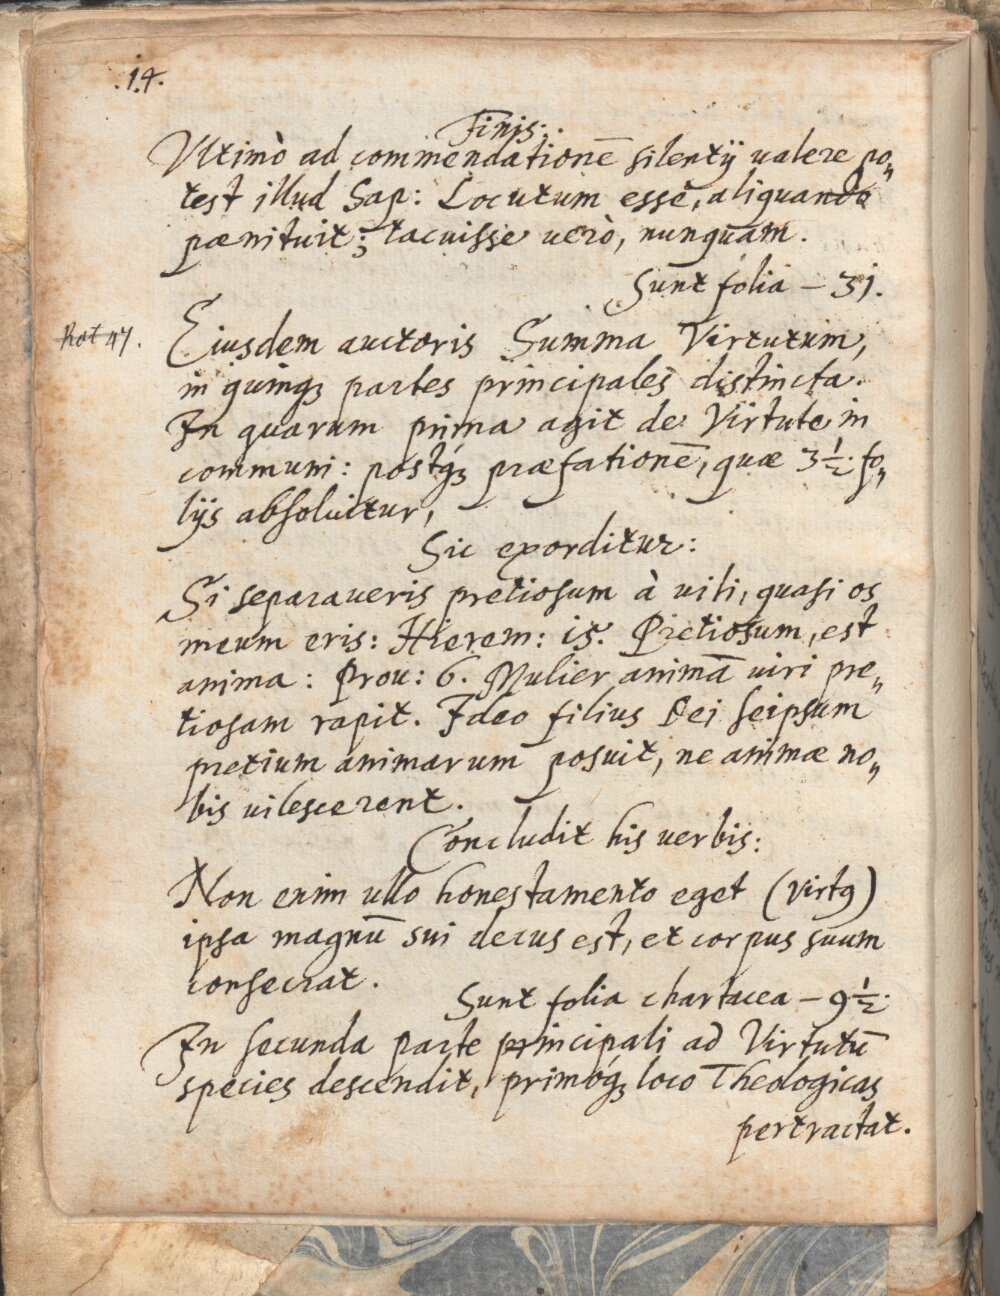 .14.
Finis.
Ultimò ad commendationē silentij ualere po„
test illud Sap: Locutum esse, aliquando
pænituit; tacuisse uerò, nunquam.
Sunt folia – 31.
Eiusdem auctoris Summa Virtutum,
in quinqꝫ partes principales distincta.
In quarum prima agit de Virtute in
communi: postqꝫ præfationē, quæ 3½ fo„
lijs absoluitur,
Sic exorditur:
Si separaueris pretiosum à uili, quasi os
meum eris: Hierem: 15. Pretiosum, est
anima: Prou: 6. Mulier animā uiri pre„
tiosam rapit. Ideo filius Dei seipsum
pretium animarum posuit, ne animæ no„
bis uilescerent.
Concludit his uerbis:
Non enim ullo honestamento eget (Virtꝰ)
ipsa magnū sui decus est, et corpus suum
consecrat.
Sunt folia chartacea – 9½.
In secunda parte principali ad Virtutū
species descendit, primóqꝫ loco Theologicas
pertractat.